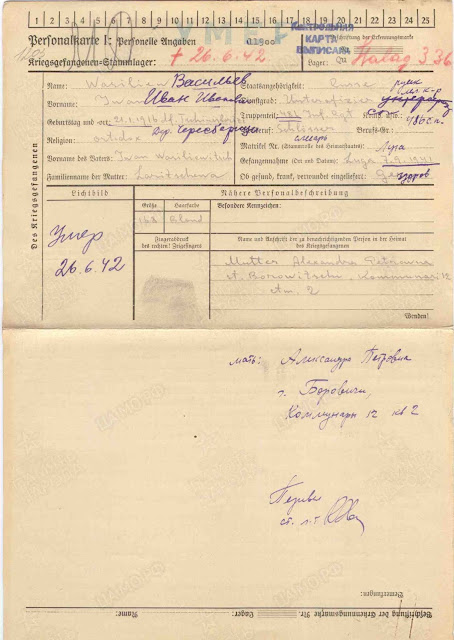 1 2 3 4 5 6 7 8 9 10 11 12 13 14 15 16 17 18 19 20 21 22 23 24 25
УМЕР
КОНТРОЛЬНАЯ
КАРТА
ВЫПИСАНА
Personalkarte I: Personelle Angaben
Kriegsgefangenen-Stammlager:
† 26.6.42
Beschriftung der Erkennungsmarke
Nr.
Lager: Stalag 336
Des Kriegsgefangenen
Name: Wasiliew Васильев
Staatsangehörigkeit: Russe
Vorname: Iwan Иван Иванович
Dienstgrad: Unteroffizier
Geburtstag und -ort:
Truppenteil: 486 Inf. Rgt.
486 с.п.
Religion: ortodox
Zivilberuf: Schlosser
слесарь
Berufs-Gr.:
Vorname des Vaters: Iwan
Matrikel Nr. (Stammrolle des Heimatstaates)
Луга
Gefangennahme (Ort und Datum): Luga 7.9.1941
Familienname der Mutter:
Ob gesund, krank, verwundet eingeliefert:
здоров
Lichtbild
Nähere Personalbeschreibung
Größe
Haarfarbe
Besondere Kennzeichen:
168
blond
Умер
26.6.42
Fingerabdruck
des rechten! Zeigefingers
Name und Anschrift der zu benachrichtigenden Person in der Heimat
des Kriegsgefangenen
Mutter Alexandra Petrowna
st. Borowitschi, Kommunari 12
kw. 2
Wenden!
мать: Александра Петровна
г. Боровичи,
Коммунары 12 кв 2
ст. л-т
Bemerkungen:
Beschriftung der Erkennungsmarke Nr.
Lager:
Name: